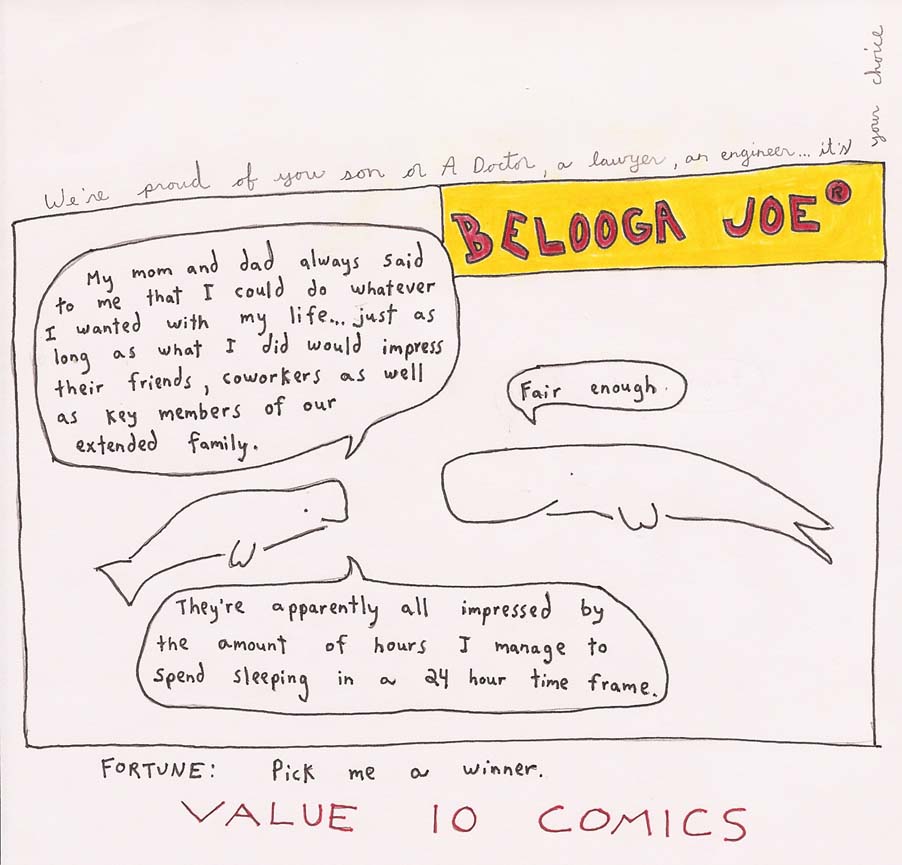 We're proud of you son or A Doctor, a lawyer, an engineer... it's your choice
BELOOGA JOE®
My mom and dad always said
to me that I could do whatever
I wanted with my life... just as
long as what I did would impress
their friends, coworkers as well
as key members of our
extended family.
Fair enough.
They're apparently all impressed by
the amount of hours I manage to
spend sleeping in a 24 hour time frame.
FORTUNE: Pick me a winner.
VALUE 10 COMICS